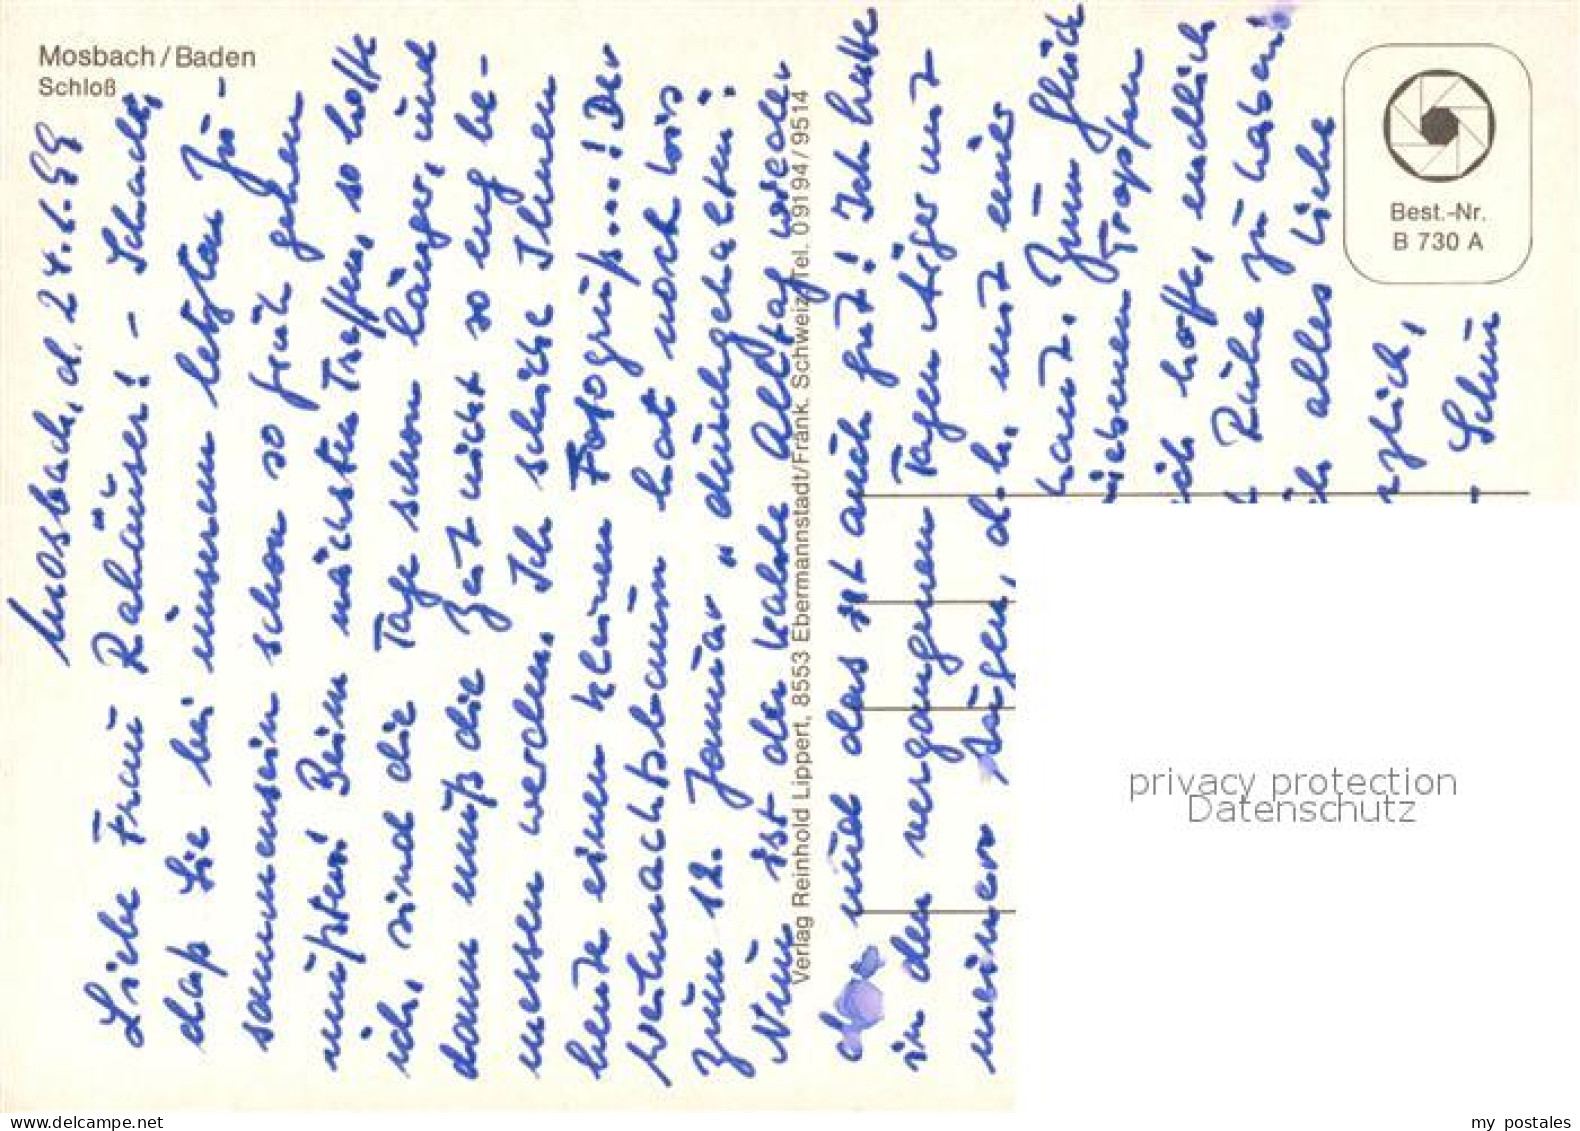 Mosbach / Baden
Schloß
Best.-Nr.
B 730 A
Verlag Reinhold Lippert, 8553 Ebermannstadt/Fränk. Schweiz, Tel. 0 91 94 / 95 14
Mosbach, d. 24.1.
Liebe Frau Rahäuser! - Schade,
daß Sie bei unserem letzten Zu-
sammensein schon so früh gehen
mußten! Beim nächsten Treffen, so hoffe
ich, sind die Tage schon länger, und
dann muß die Zeit nicht so eng be-
messen werden. Ich schicke Ihnen
heute einen kleinen Fotogruß...! Der
Weihnachtsbaum hat noch bis
zum 12. Januar " durchgehalten!
Nun ist der kahle Alltag wieder
da und das ist auch gut! Ich hatte
in den vergangenen Tagen Ärger mit
meinen Augen, d.h. mit einer
haut. Zum Glück
iebenen Tropfen
ich hoffe, endlich
Ruhe zu haben!
ch alles Liebe
rzlich,
privacy protection
Datenschutz
www.delcampe.net
my postales